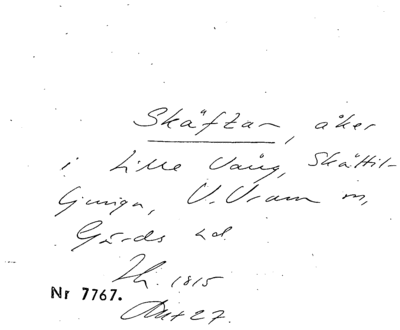 Skäftan, åker
i Lille Vång, Skättil-
ljunga, V. Vram sn,
Gärds hd.
1815
Nr 7767.
Akt 27.